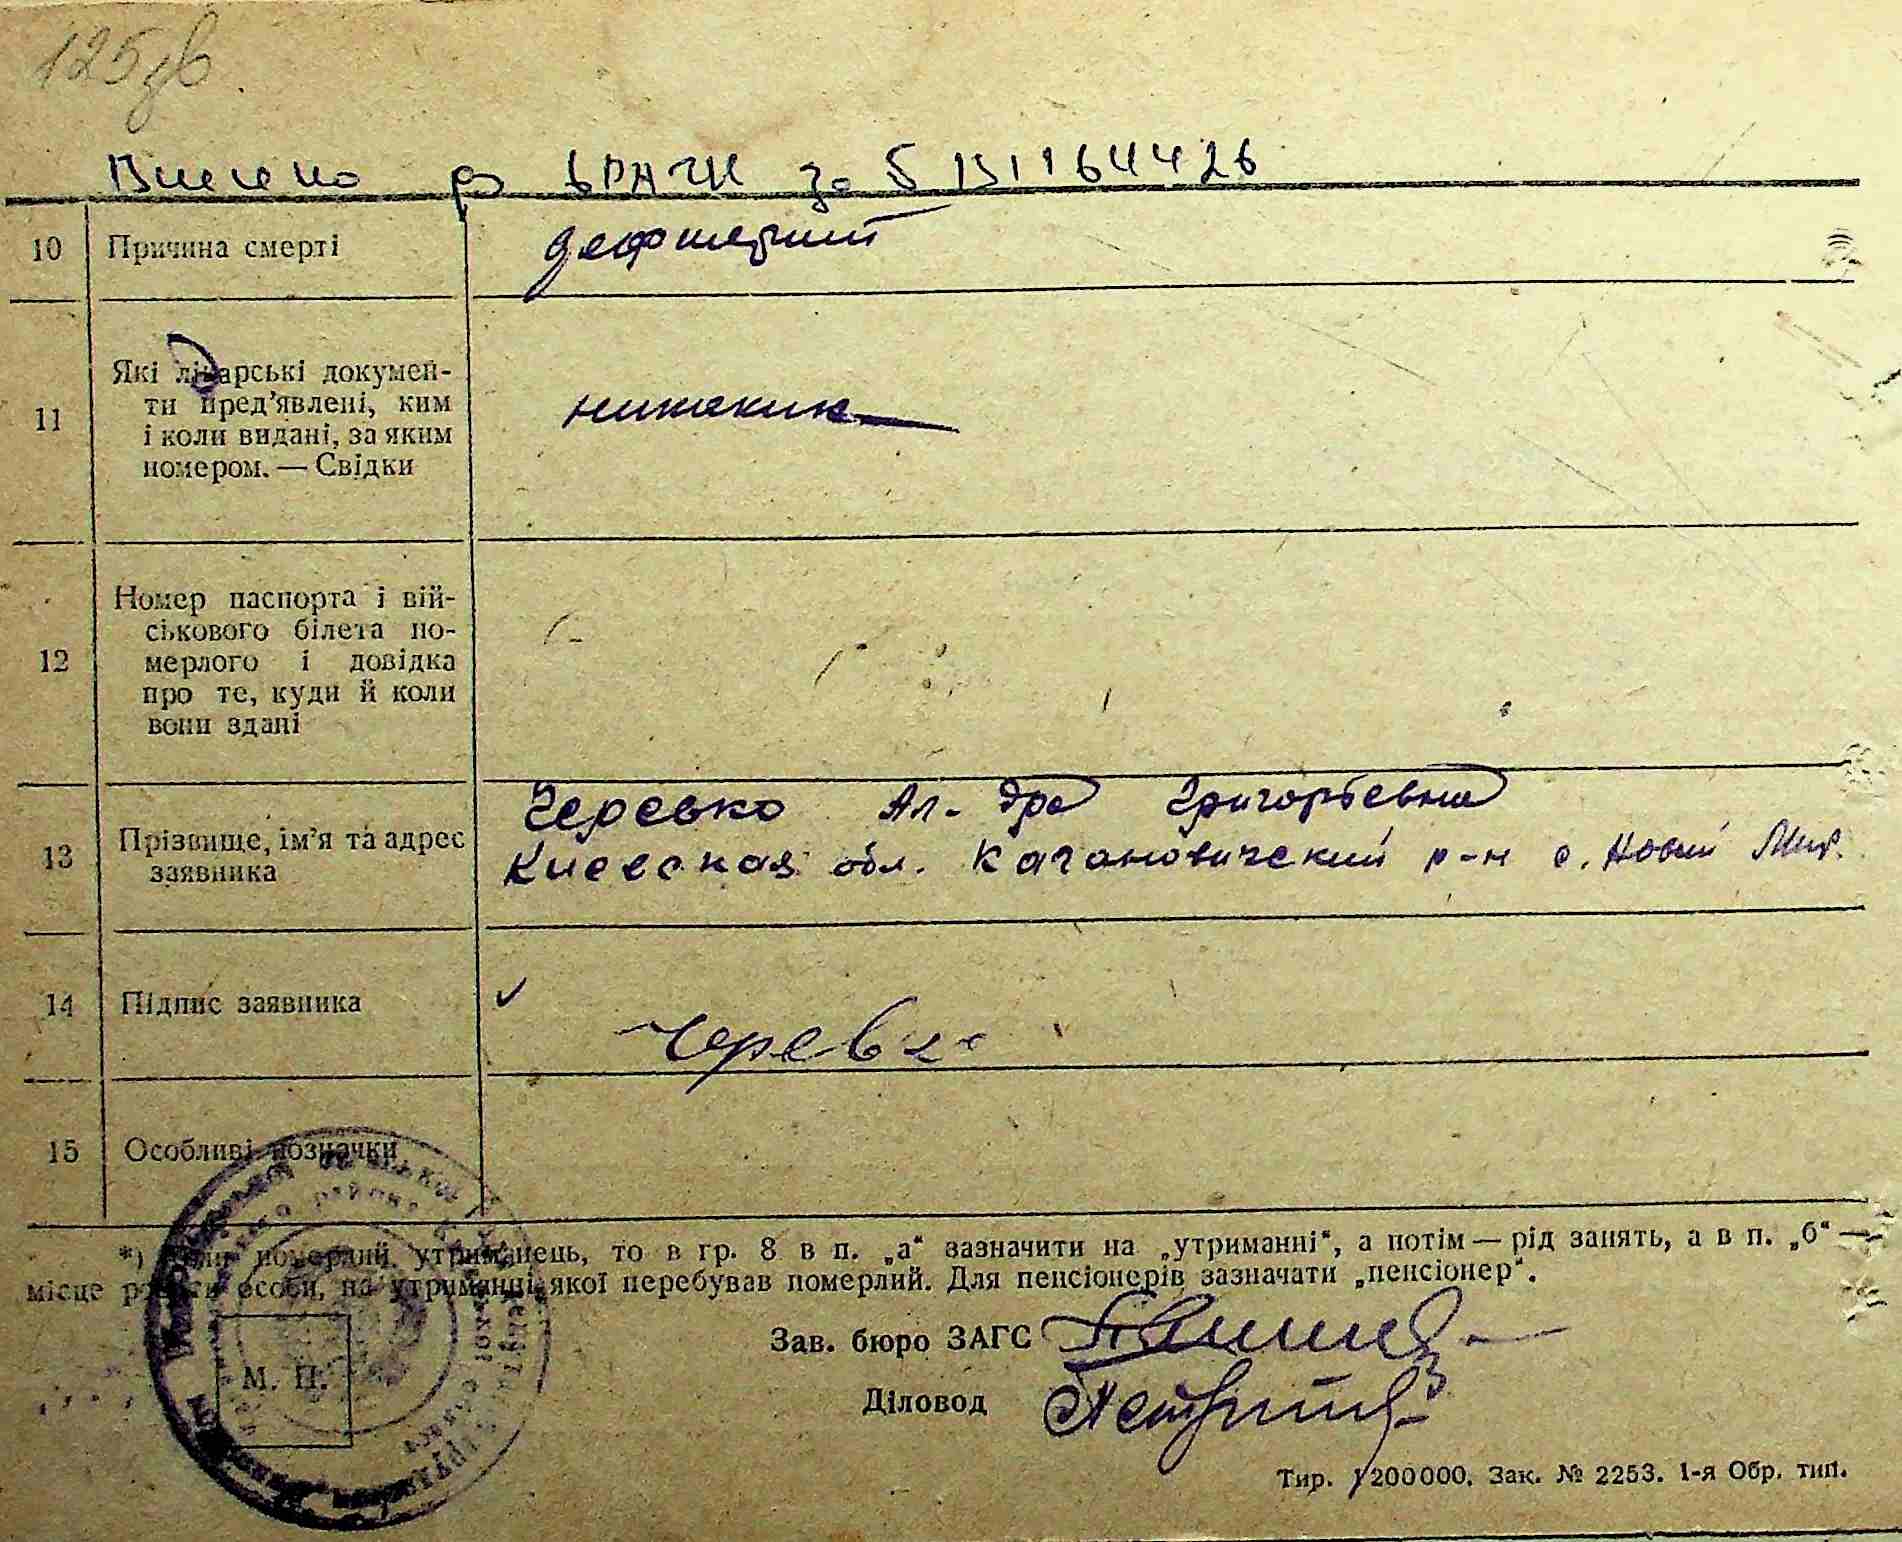 125зв.
Внесено до ДРАЦС за
10 Причина смерті
11 Які лікарські докумен-
ти пред’явлені, ким
і коли видані, за яким
номером. — Свідки
12 Номер паспорта і вій-
ськового білета по-
мерлого і довідка
про те, куди й коли
вони здані
13 Прізвище, ім’я та адрес
заявника
Черевко Ал-дра Григорьевна
Киевская обл. Кагановичский р-н с. Новый Мир.
14 Підпис заявника
15 Особливі позначки
*) Коли померлий утриманець, то в гр. 8 в п. „а“ зазначити на „утриманні“, а потім — рід занять, а в п. „б“ —
місце роботи особи, на утриманні якої перебував померлий. Для пенсіонерів зазначати „пенсіонер“.
М. П.
Зав. бюро ЗАГС
Діловод
Тир. 1200000. Зак. № 2253. 1-я Обр. тип.